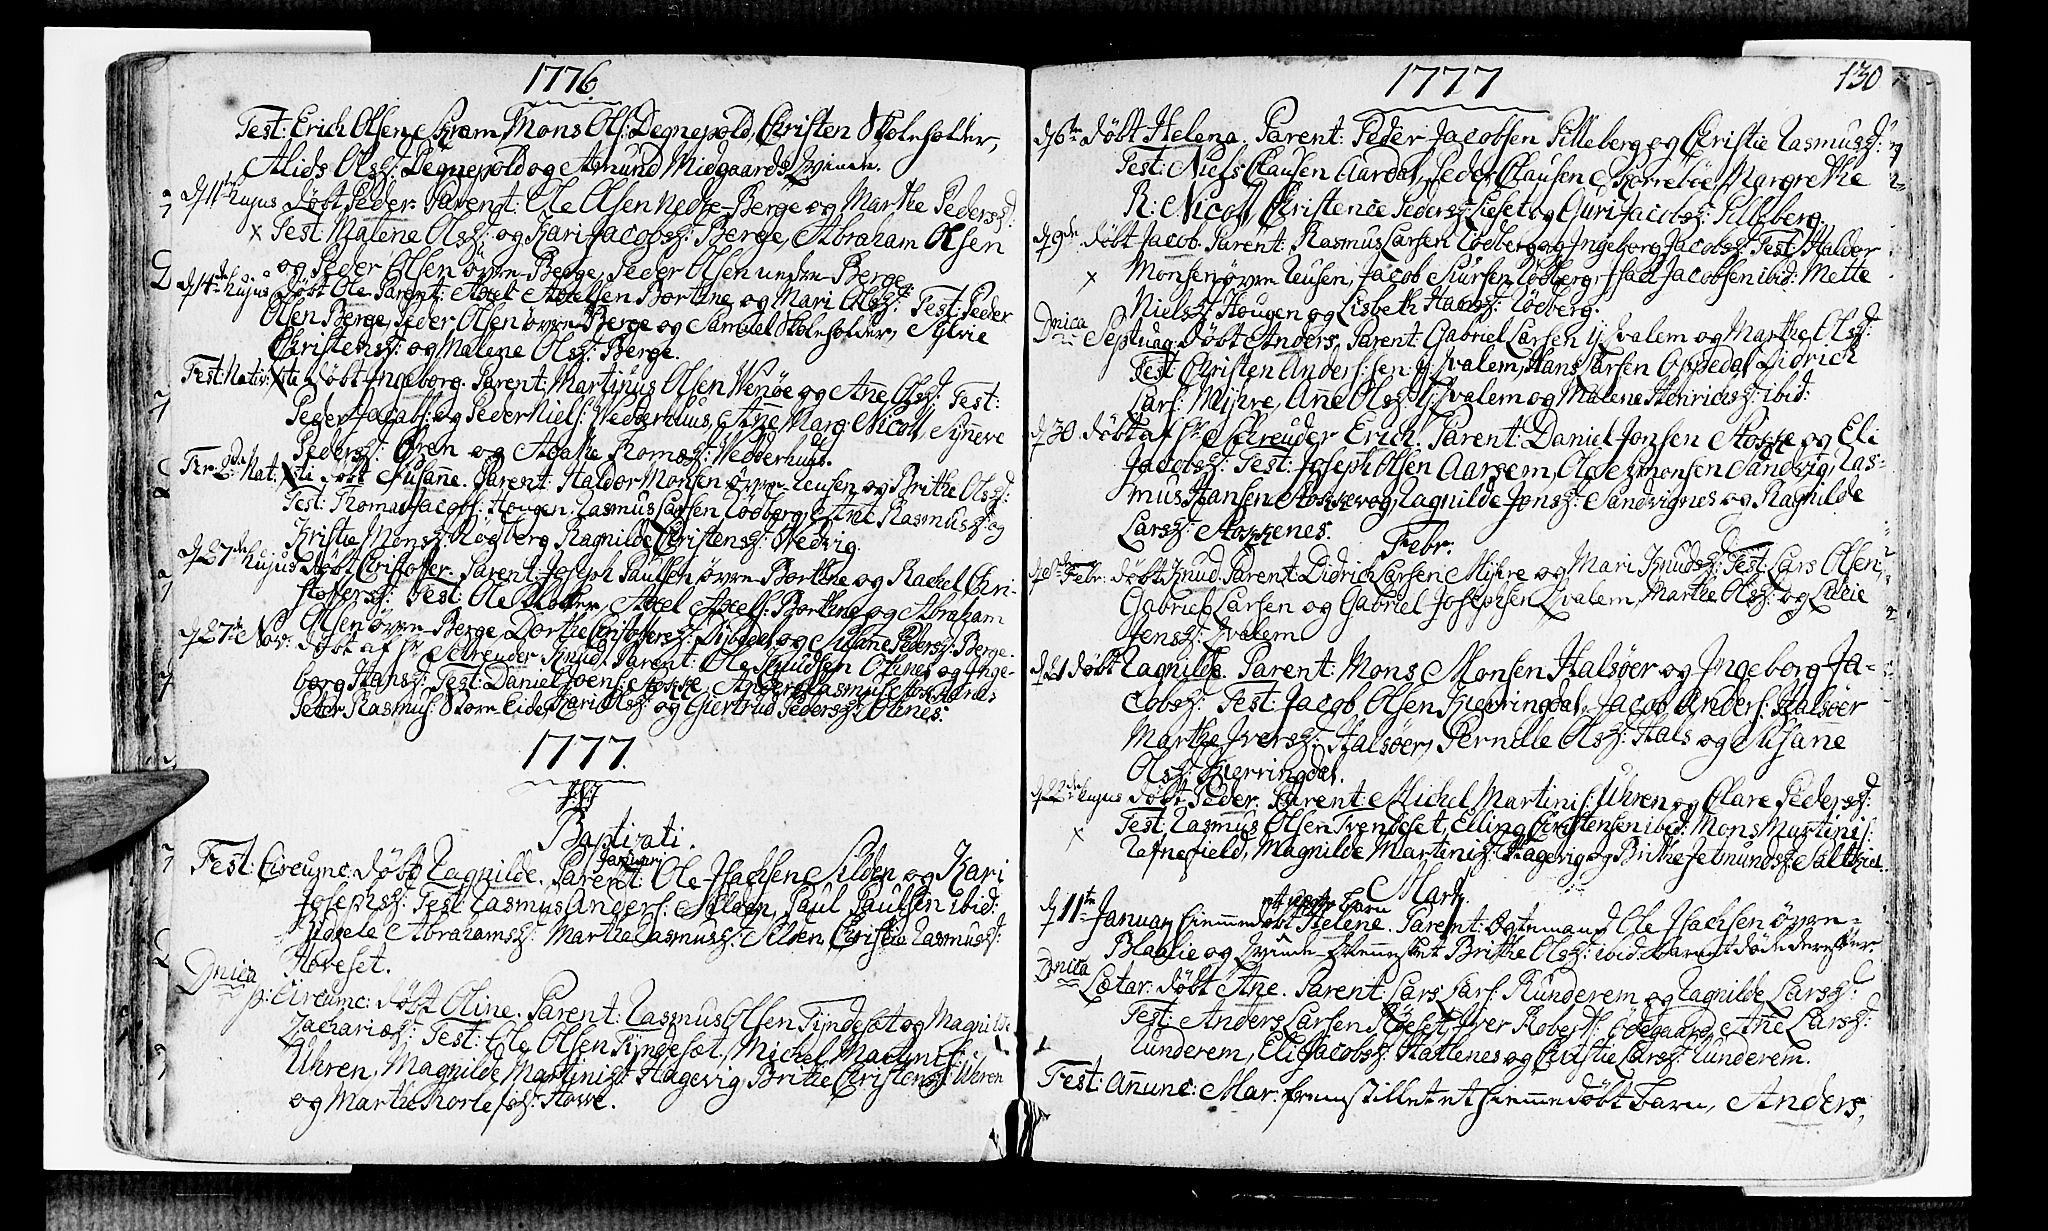 1776
Test: Erich Olsen Skram, Mons Ols: Degnepold, Christen Skoleholder,
Alids Olsd: Degnepold og Amund Midgaards Qvinde.
d 11te hujus døbt Peder. Parent: Ole Olsen Nedre-Berge og Marthe Pedersd:
Test: Malene Olsd: og Kari Jacobsd: Berge, Abraham Olsen
og Peder Olsen øvre-Berge, Peder Olsen undre-Berge.
d 14de hujus døbt Ole. Parent: Axel Axelsen Bortne og Mari Olsd: Test: Peder
Olsen Berge, Peder Olsen øvre-Berge og Samuel Skoleholder, Sylvie
Christensd: og Malene Olsd: Berge.
Fest: Nativ: Xti døbt Ingeborg. Parent: Martinus Olsen Wenøe og Añe Olsd: Test:
Peder Jacobs: og Peder Niels: Wedderhuus, Añe Marg: Nicoll, Syñeve
Pedersd: og Romsd: Wedderhuus.
Fer: 2de Nat: Xti døbt Susañe. Parent: Haldor Monsen øvre-Leusen og Brithe Olsd:
Test: Thomas Jacobs: Hougen, Rasmus Larsen Lødberg, Rasmusd: og
Kristie Monsd: Rødberg, Ragnilde Christensd: Nedvig.
d 27de hujus døbt Christoffer. Parent: Joseph Paulsen øvre-Borthne og Rachel Chri-
stoffersd: Test: Ole, Axel Axels: Borthne og Abraham
Olsen øvre-Berge, Dorthe Christoffersd: Dybedal og Susañe Pedersd: Berge.
d 27de Nov: døbt af Hr Schreuder Knud. Parent: Ole Knudsen Othnes og Inge-
borg Hansd: Test: Daniel Joens: Stokke, Anders Rasmus:
Peder Rasmus: Store-Eide, Kari Olsd: og Giertrud Pedersd: Othnes.
1777.
Baptizati.
Januari
Fest: Circumc: døbt Ragnilde. Parent: Ole Isachsen Silden og Kari
Josephsd: Test: Rasmus Anders: Silden, Paul Paulsen ibid:
Gidsele Abrahamsd: Marthe Rasmusd: Silden, Christie Rasmusd:
Hoveset.
Dnica
p: Circumc: døbt Oline. Parent: Rasmus Olsen Tyndeset og Magnilde
Zachariæd: Test: Ole Olsen Tyndeset, Michel Martinis:
Uhren, Magnilde Martinisd: Hagevig, Brithe Christensd: Uhren
og Marthe Thorlefsd: Hovve.
1777
130
d 6te døbt Helena. Parent: Peder Jacobsen Pilleberg og Christie Rasmusd:
Test: Niels Clausen Aardal, Peder Clausen Skorrebøe, Margrethe
R: Nicoll, Christence Pedersd: Lieset og Guri Jacobsd: Pilleberg.
d 9de døbt Jacob. Parent: Rasmus Larsen Lødberg og Ingeborg Jacobsd: Test: Halder
Monsen øvre Leusen, Jacob Siursen Lødberg, Isac Jacobsen ibid: Mette
Nielsd: Hougen og Lisbeth Hansd: Lødberg.
Dnica
Septuag: døbt Anders. Parent: Gabriel Larsen y: Qvalem og Marthe Olsd:
Test: Christen Anders:sen y: Qvalem, Hans Larsen Oppedal, Didrich
Lars: Myhre, Añe Olsd: y: Qvalem og Malene Henrichsd: ibid:
d 30 døbt af Hr Schreuder Erich. Parent: Daniel Jonsen Stokke og Eli
Jacobsd: Test: Joseph Olsen Aarsem, Ole Simonsen Sandvig, Ras-
mus Hansen Stokkevog, Ragnilde Jonsd: Sandvignes og Ragnilde
Larsd: Stokkenes.
Febr.
d 8de Febr: døbt Knud. Parent: Didrich Larsen Myhre og Mari Knudsd: Test: Lars Olsen,
Gabriel Larsen og Gabriel Josephsen Qvalem, Marthe Olsd: og Lucie
Jensd: Qvalem
d 21 døbt Ragnilde. Parent: Mons Monsen Halsøer og Ingeborg Ja-
cobsd: Test: Jacob Olsen Kierringdal, Jacob Anders: Halsøer
Marthe Iversd: Halsøer, Pernille Olsd: Hals og Susañe
Olsd: Kierringdal.
d 22de hujus døbt Peder. Parent: Michel Martinis: Uhren og Clare Pedersd:
Test: Rasmus Olsen Trendeset, Elling Christensen ibid: Mons Martinis:
Refnefield, Magnilde Martinisd: Hagevig og Brithe Jetmundsd: Saltkiel.
Marti.
d 11te Januar hiemmedøbt Helene. Parent: Ole Isachsen øvre-
Blaalie og Qvinde Brithe Olsd: ibid: Barnet døde derefter.
Dnica
Lætar: døbt Añe. Parent: Lars Lars: Runderem og Ragnilde Larsd:
Test: Anders Larsen Røeset, Iver Roberts: Ødegaard, Añe Larsd:
Runderem, Eli Jacobsd: Hatlenes og Christie Larsd: Runderem.
Fest: Añunc: Mar: fremstillet et hiemmedøbt barn, Anders,